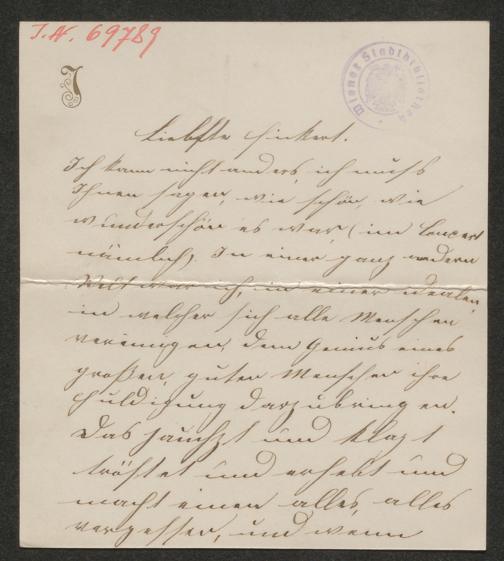 I. N. 69789
Wiener Stadtbibliothek
J
Liebste Fickert.
Ich kann nicht anders, ich muß
Ihnen sagen, wie schön, wie
wunderschön es war, (im Concert
nämlich). In einer ganz andern
Welt war ich, in einer idealen,
in welcher sich alle Menschen
vereinigen, dem Genius eines
großen, guten Menschen ihre
Huldigung darzubringen.
Das jauchzt und klagt
tröstet und erhebt und
macht einen alles, alles
vergessen, und wenn